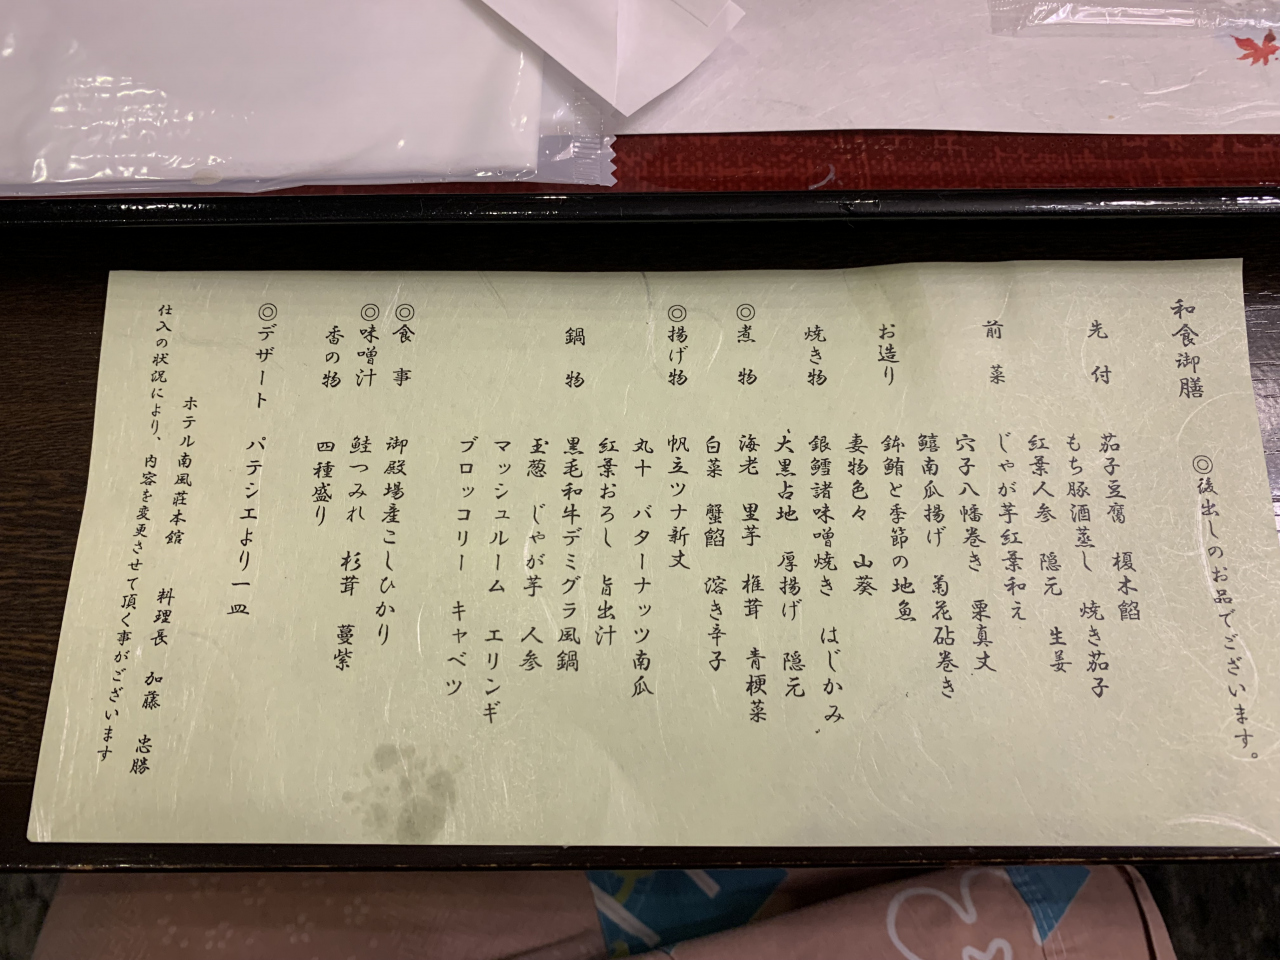 和食御膳
◎後出しのお品でございます。
先付 茄子豆腐 榎木餡
もち豚酒蒸し 焼き茄子
紅葉人参 隠元 生姜
前菜 じゃが芋紅葉和え
穴子八幡巻き 栗真丈
鱚南瓜揚げ 菊花砧巻き
お造り 鉾鮪と季節の地魚
妻物色々 山葵
焼き物 銀鱈諸味噌焼き はじかみ
大黒占地 厚揚げ 隠元
◎煮物 海老 里芋 椎茸 青梗菜
白菜 蟹餡 溶き辛子
◎揚げ物 帆立ツナ新丈
丸十 バターナッツ南瓜
紅葉おろし 旨出汁
鍋物 黒毛和牛デミグラ風鍋
玉葱 じゃが芋 人参
マッシュルーム エリンギ
ブロッコリー キャベツ
◎食事 御殿場産こしひかり
◎味噌汁 鮭つみれ 杉茸 蔓紫
香の物 四種盛り
◎デザート パテシエより一皿
ホテル南風荘本館 料理長 加藤 忠勝
仕入の状況により、内容を変更させて頂く事がございます